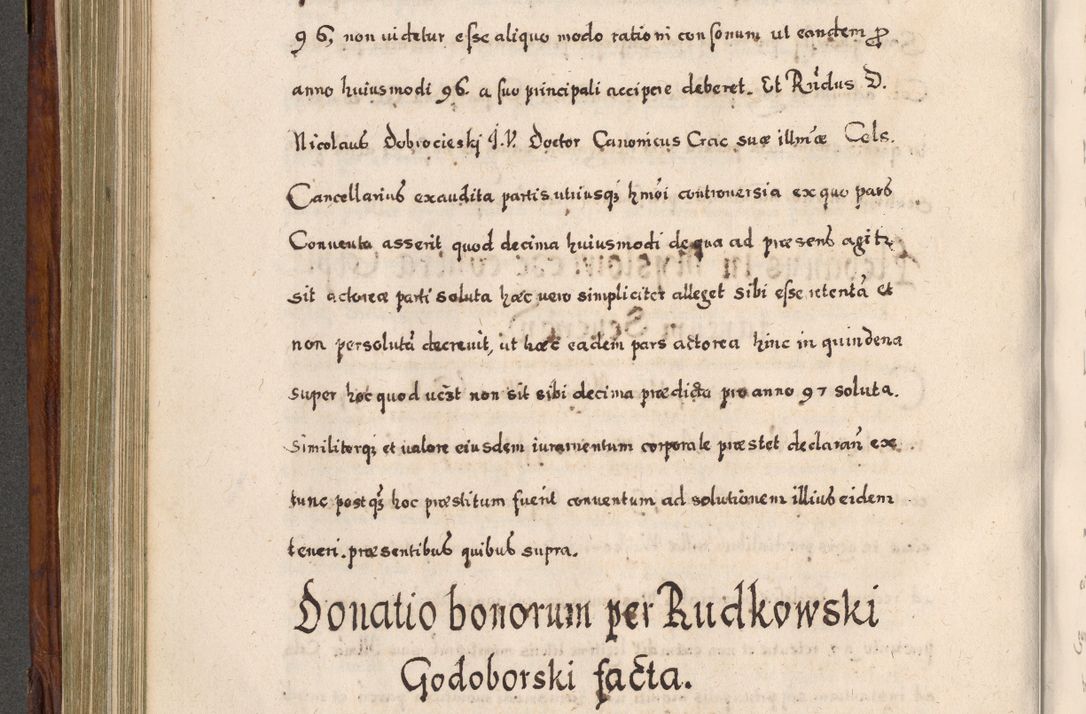 96, non uidetur esse aliquo modo rationi consonum ut eandem ꝓ
anno huiusmodi 96. a suo principali accipere deberet. Et Rñdus D.
Nicolaus Dobrocieski J. V. Doctor Canonicus Crac suæ illmæ Cels.
Cancellarius exaudita partis utriusq; hmoi controuersia ex quo pars
Conuenta asserit quod decima huiusmodi de qua ad præsens agitr
sit actoreæ parti soluta hæc uero simpliciter alleget sibi esse retentā et
non persolutā decreuit, ut hæc eadem pars actorea hinc in quindena
super hoc quod uczt non sit sibi decima prædicta pro anno 97 soluta.
Similiterq; et ualore eiusdem iuramentum corporale præstet declarañ ex
tunc postq̃ hoc præstitum fuerit conuentum ad solutionem illius eidem
teneri. præsentibus quibus supra.
Donatio bonorum per Rudkowski
Godoborski facta.